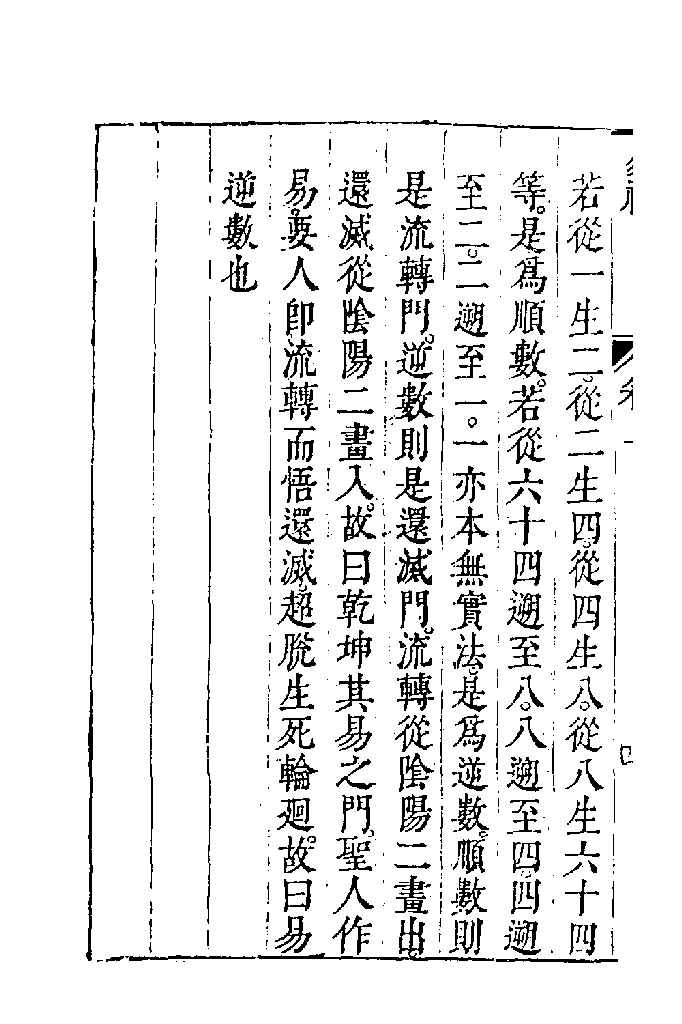 若從一生二。從二生四。從四生八。從八生六十四
等。是爲順數。若從六十四遡至八。八遡至四。四遡
至二。二遡至一。一亦本無實法。是爲逆數。順數則
是流轉門。逆數則是還滅門。流轉從陰陽二畫出。
還滅從陰陽二畫入。故曰乾坤其易之門。聖人作
易。要人卽流轉而悟還滅。超脫生死輪廻。故曰易
逆數也